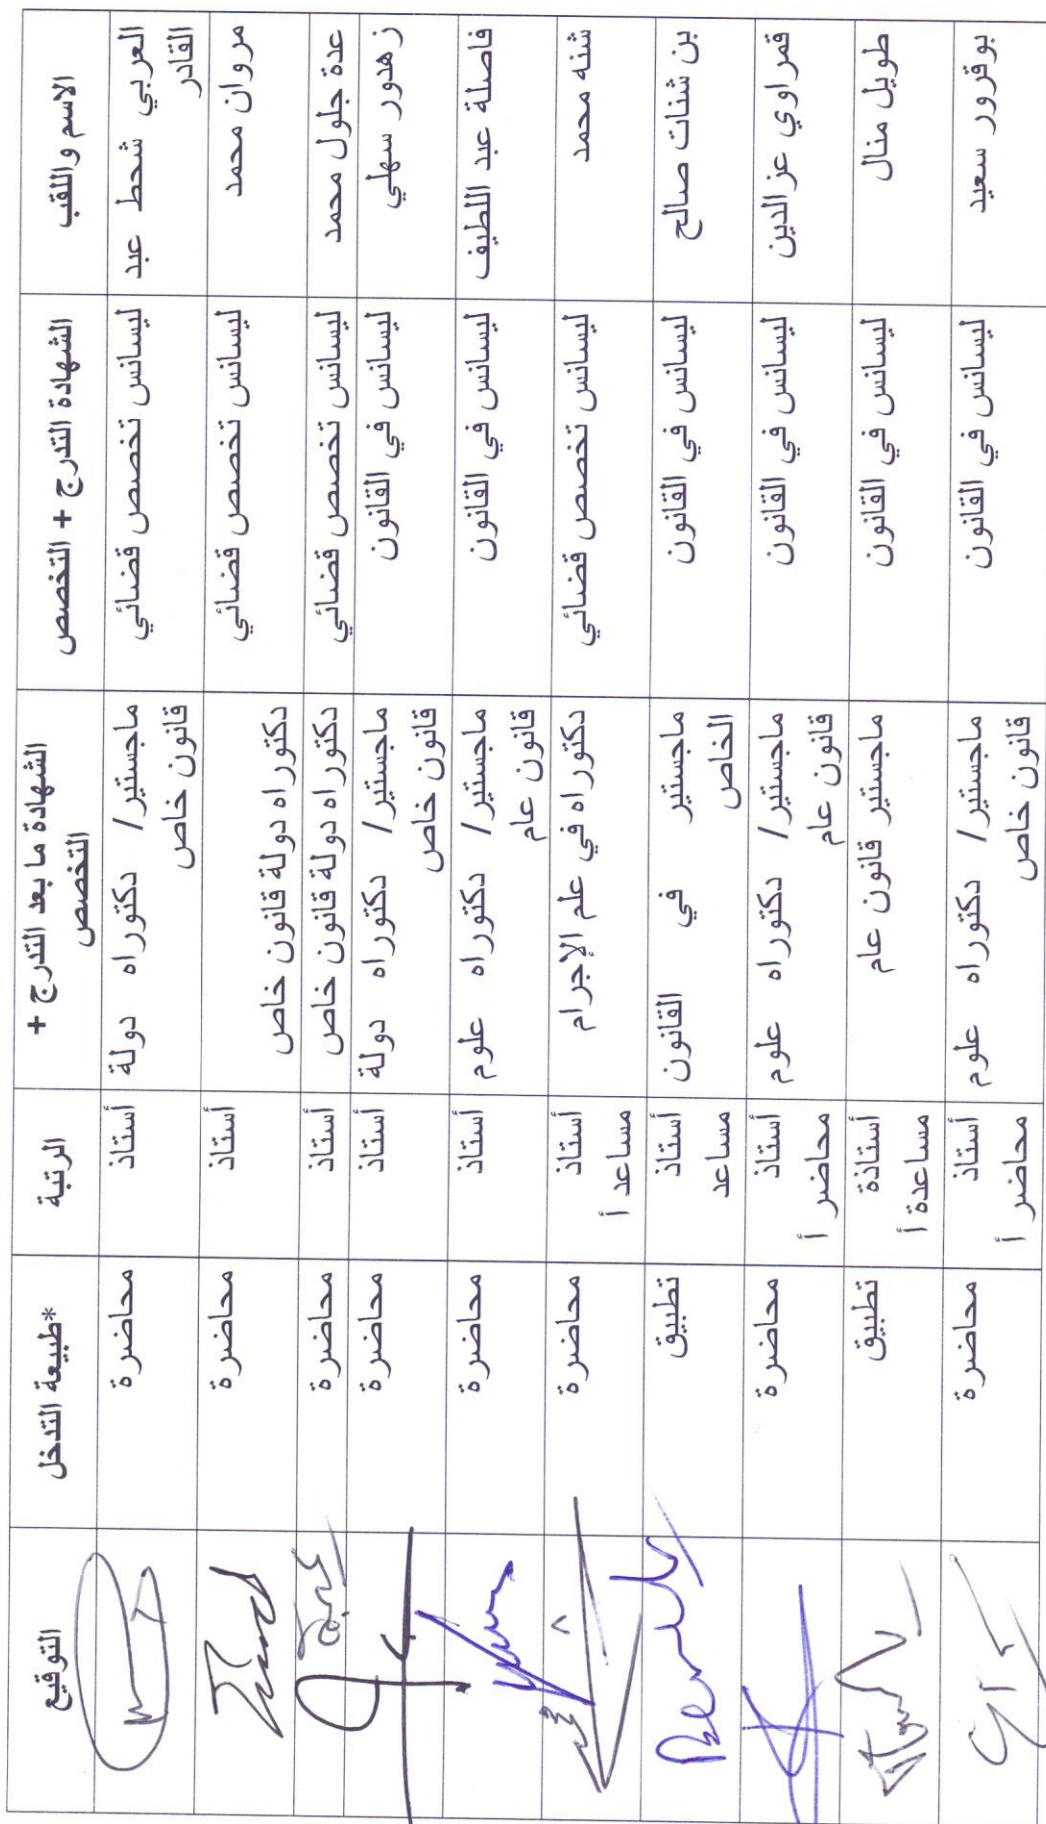 الاسم واللقب
الشهادة التدرج + التخصص
الشهادة ما بعد التدرج +
التخصص
الرتبة
*طبيعة التدخل
التوقيع
العربي شحط عبد
القادر
ليسانس تخصص قضائي
ماجستير/ دكتوراه دولة
قانون خاص
أستاذ
محاضرة
مروان محمد
ليسانس تخصص قضائي
دكتوراه دولة قانون خاص
أستاذ
محاضرة
عدة جلول محمد
ليسانس تخصص قضائي
دكتوراه دولة قانون خاص
أستاذ
محاضرة
زهدور سهلي
ليسانس في القانون
ماجستير/ دكتوراه دولة
قانون خاص
أستاذ
محاضرة
فاصلة عبد اللطيف
ليسانس في القانون
ماجستير/ دكتوراه علوم
قانون عام
أستاذ
محاضرة
شنه محمد
ليسانس تخصص قضائي
دكتوراه في علم الإجرام
أستاذ
مساعد أ
محاضرة
بن شنات صالح
ليسانس في القانون
ماجستير في القانون
الخاص
أستاذ
مساعد
تطبيق
قمراوي عز الدين
ليسانس في القانون
ماجستير/ دكتوراه علوم
قانون عام
أستاذ
محاضر أ
محاضرة
طويل منال
ليسانس في القانون
ماجستير قانون عام
أستاذة
مساعدة أ
تطبيق
بوقرور سعيد
ليسانس في القانون
ماجستير/ دكتوراه علوم
قانون خاص
أستاذ
محاضر أ
محاضرة